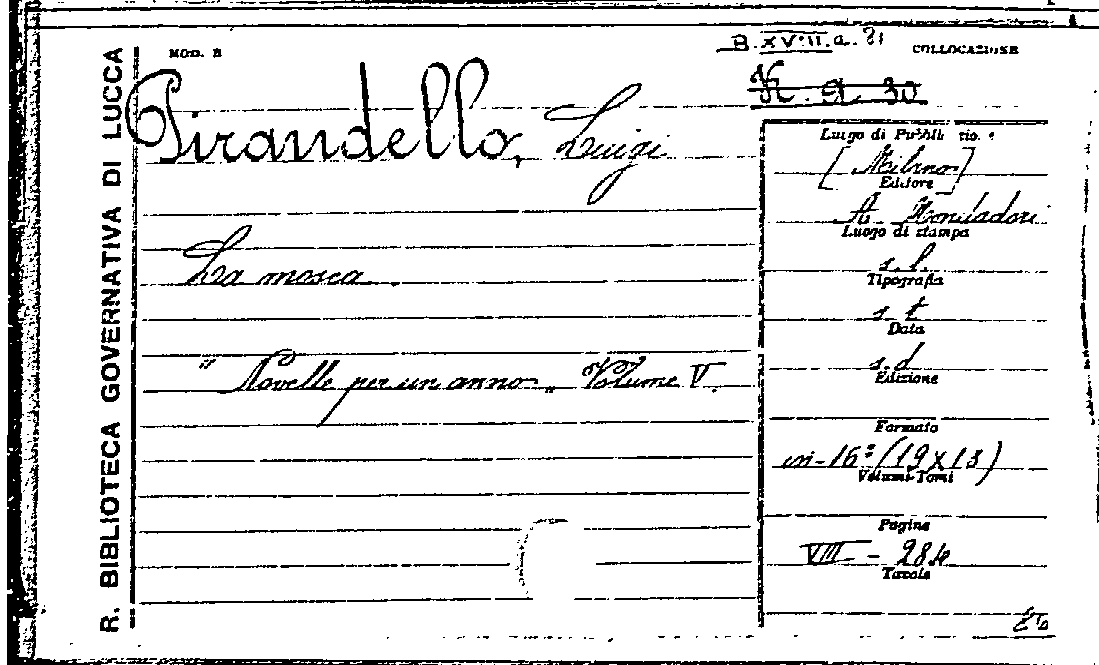 R. BIBLIOTECA GOVERNATIVA DI LUCCA
MOD. B
B. XVIII. a. 21
COLLOCAZIONE
Pirandello, Luigi
Luogo di Pubblicazione
[Milano]
Editore
A. Mondadori
Luogo di stampa
La mosca
s. l.
Tipografia
s. t.
Data
" Novelle per un anno „ Volume V.
s. d.
Edizione
Formato
in-16° (19x13)
Volumi-Tomi
Pagine
VIII - 284
Tavole